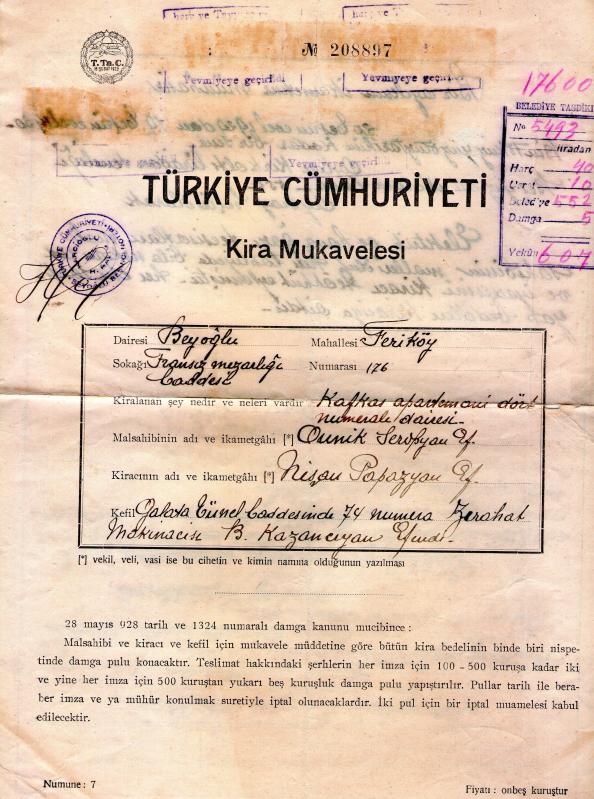 T.Ta.C.
№ 208897
Yevmiyeye geçirildi
Yevmiyeye geçirildi
17600
BELEDİYE TASDİKİ
№ 5492
Liradan
Harç 40
Ücret 10
Belediye 552
Damga 5
Yekûn 607
TÜRKİYE CÜMHURİYETİ
Kira Mukavelesi
Dairesi Beyoğlu Mahallesi Feriköy
Sokağı Fransız mezarlığı Numarası 176
Caddesi
Kiralanan şey nedir ve neleri vardır Kafkas apartemani dört
numeralı dairesi.
Malsahibinin adı ve ikametgâhı [*] Ounik Seropyan Ef.
Kiracının adı ve ikametgâhı [*] Nişan Papazyan Ef.
Kefil Galata Tünel Caddesinde 74 numera Zerahat
Makinacisi B. Kazancıyan Efendi.
[*] vekil, veli, vasi ise bu cihetin ve kimin namına olduğunun yazılması
28 mayıs 928 tarih ve 1324 numaralı damga kanunu mucibince :
Malsahibi ve kiracı ve kefil için mukavele müddetine göre bütün kira bedelinin binde biri nispe-
tinde damga pulu konacaktır. Teslimat hakkındaki şerhlerin her imza için 100 - 500 kuruşa kadar iki
ve yine her imza için 500 kuruştan yukarı beş kuruşluk damga pulu yapıştırılır. Pullar tarih ile bera-
ber imza ve ya mühür konulmak suretiyle iptal olunacaklardır. İki pul için bir iptal muamelesi kabul
edilecektir.
Numune : 7
Fiyatı : onbeş kuruştur